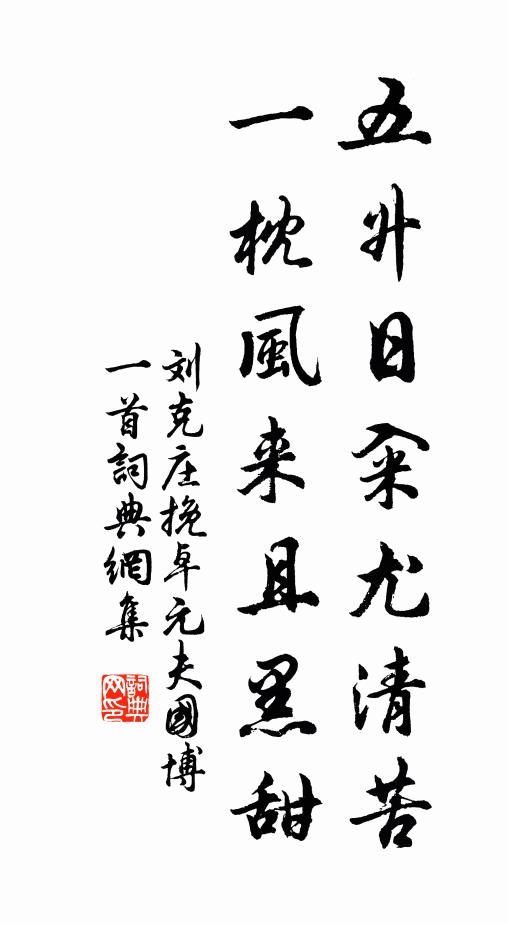 五升日籴尤清苦
一枕風来且黑甜
刘克庄挽卓元夫國博
一首詞典網集
詞典
网印